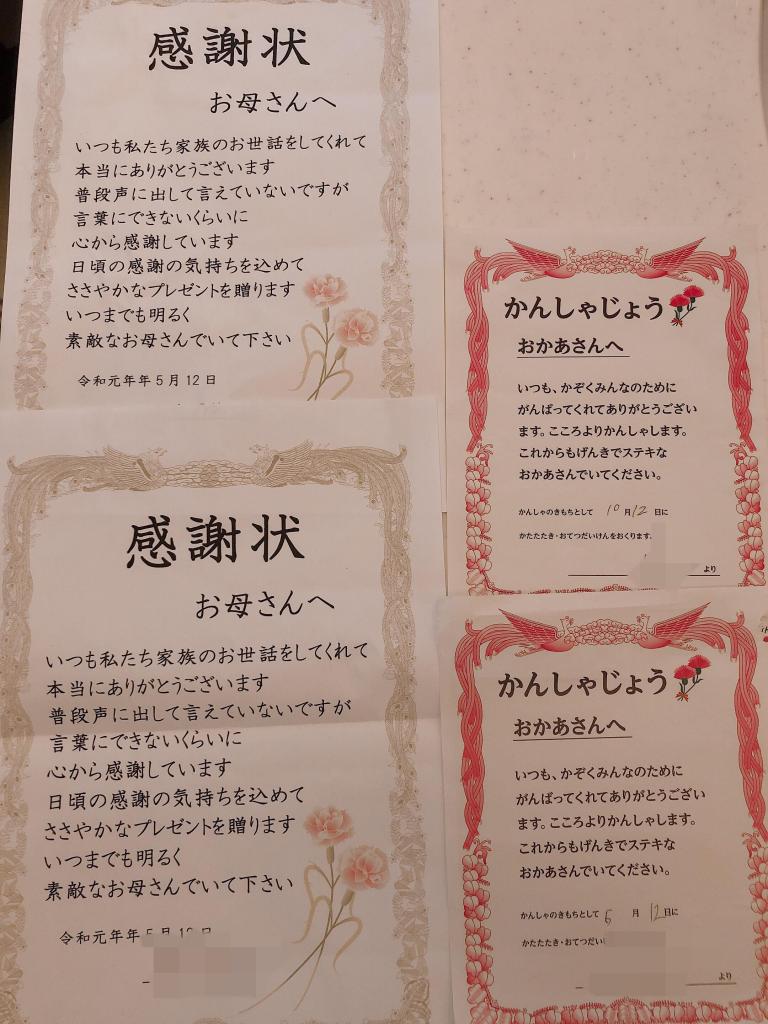 感謝状
お母さんへ
いつも私たち家族のお世話をしてくれて
本当にありがとうございます
普段声に出して言えていないですが
言葉にできないくらいに
心から感謝しています
日頃の感謝の気持ちを込めて
ささやかなプレゼントを贈ります
いつまでも明るく
素敵なお母さんでいて下さい
令和元年年5月12日
かんしゃじょう
おかあさんへ
いつも、かぞくみんなのために
がんばってくれてありがとうござい
ます。こころよりかんしゃします。
これからもげんきでステキな
おかあさんでいてください。
かんしゃのきもちとして 10月12日に
かたたたき・おてつだいけんをおくります。
より
感謝状
お母さんへ
いつも私たち家族のお世話をしてくれて
本当にありがとうございます
普段声に出して言えていないですが
言葉にできないくらいに
心から感謝しています
日頃の感謝の気持ちを込めて
ささやかなプレゼントを贈ります
いつまでも明るく
素敵なお母さんでいて下さい
令和元年年5月12日
かんしゃじょう
おかあさんへ
いつも、かぞくみんなのために
がんばってくれてありがとうござい
ます。こころよりかんしゃします。
これからもげんきでステキな
おかあさんでいてください。
かんしゃのきもちとして 月12日に
かたたたき・おてつだい
より